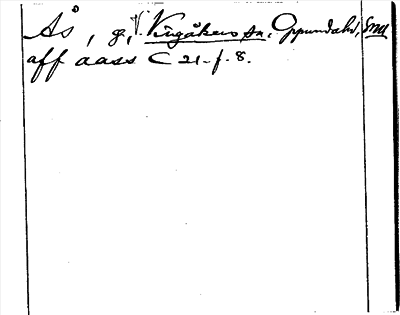 Ås, g, V. Vingåkers sn, Oppunda hd, Sml
aff aass C 21 f. 8.